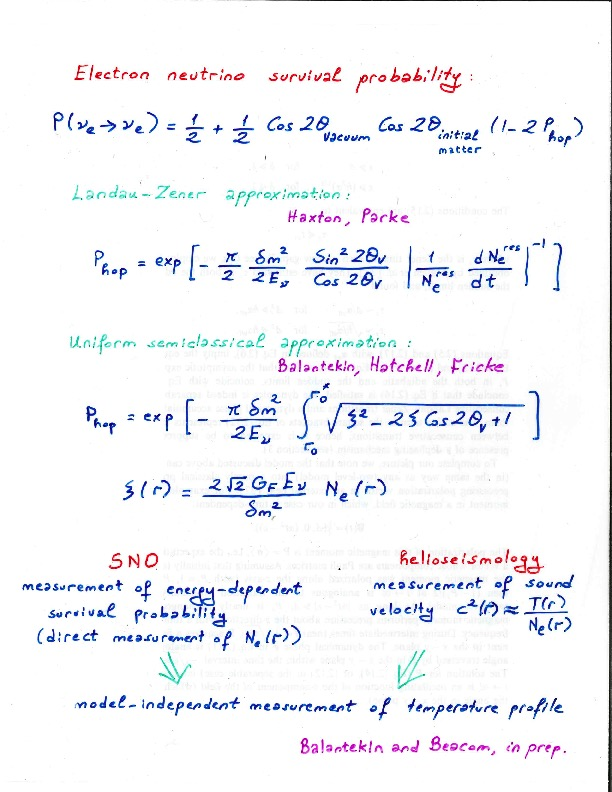 Electron neutrino survival probability:
P(νe → νe) = 1/2 + 1/2 Cos 2θ vacuum Cos 2θ initial matter (1 - 2 P hop)
Landau-Zener approximation:
Haxton, Parke
P hop = exp [ - π/2 δm²/2Eν Sin² 2θv / Cos 2θv | 1/Ne^res dNe^res/dt |^-1 ]
Uniform semiclassical approximation:
Balantekin, Hatchell, Fricke
P hop = exp [ - π δm²/2Eν ∫_{r0}^{r0*} √(ξ² - 2ξ Cos 2θv + 1) ]
ξ(r) = 2√2 GF Eν / δm² Ne(r)
SNO
measurement of energy-dependent
survival probability
(direct measurement of Ne(r))
helioseismology
measurement of sound
velocity c²(r) ≈ T(r)/Ne(r)
model-independent measurement of temperature profile
Balantekin and Beacom, in prep.